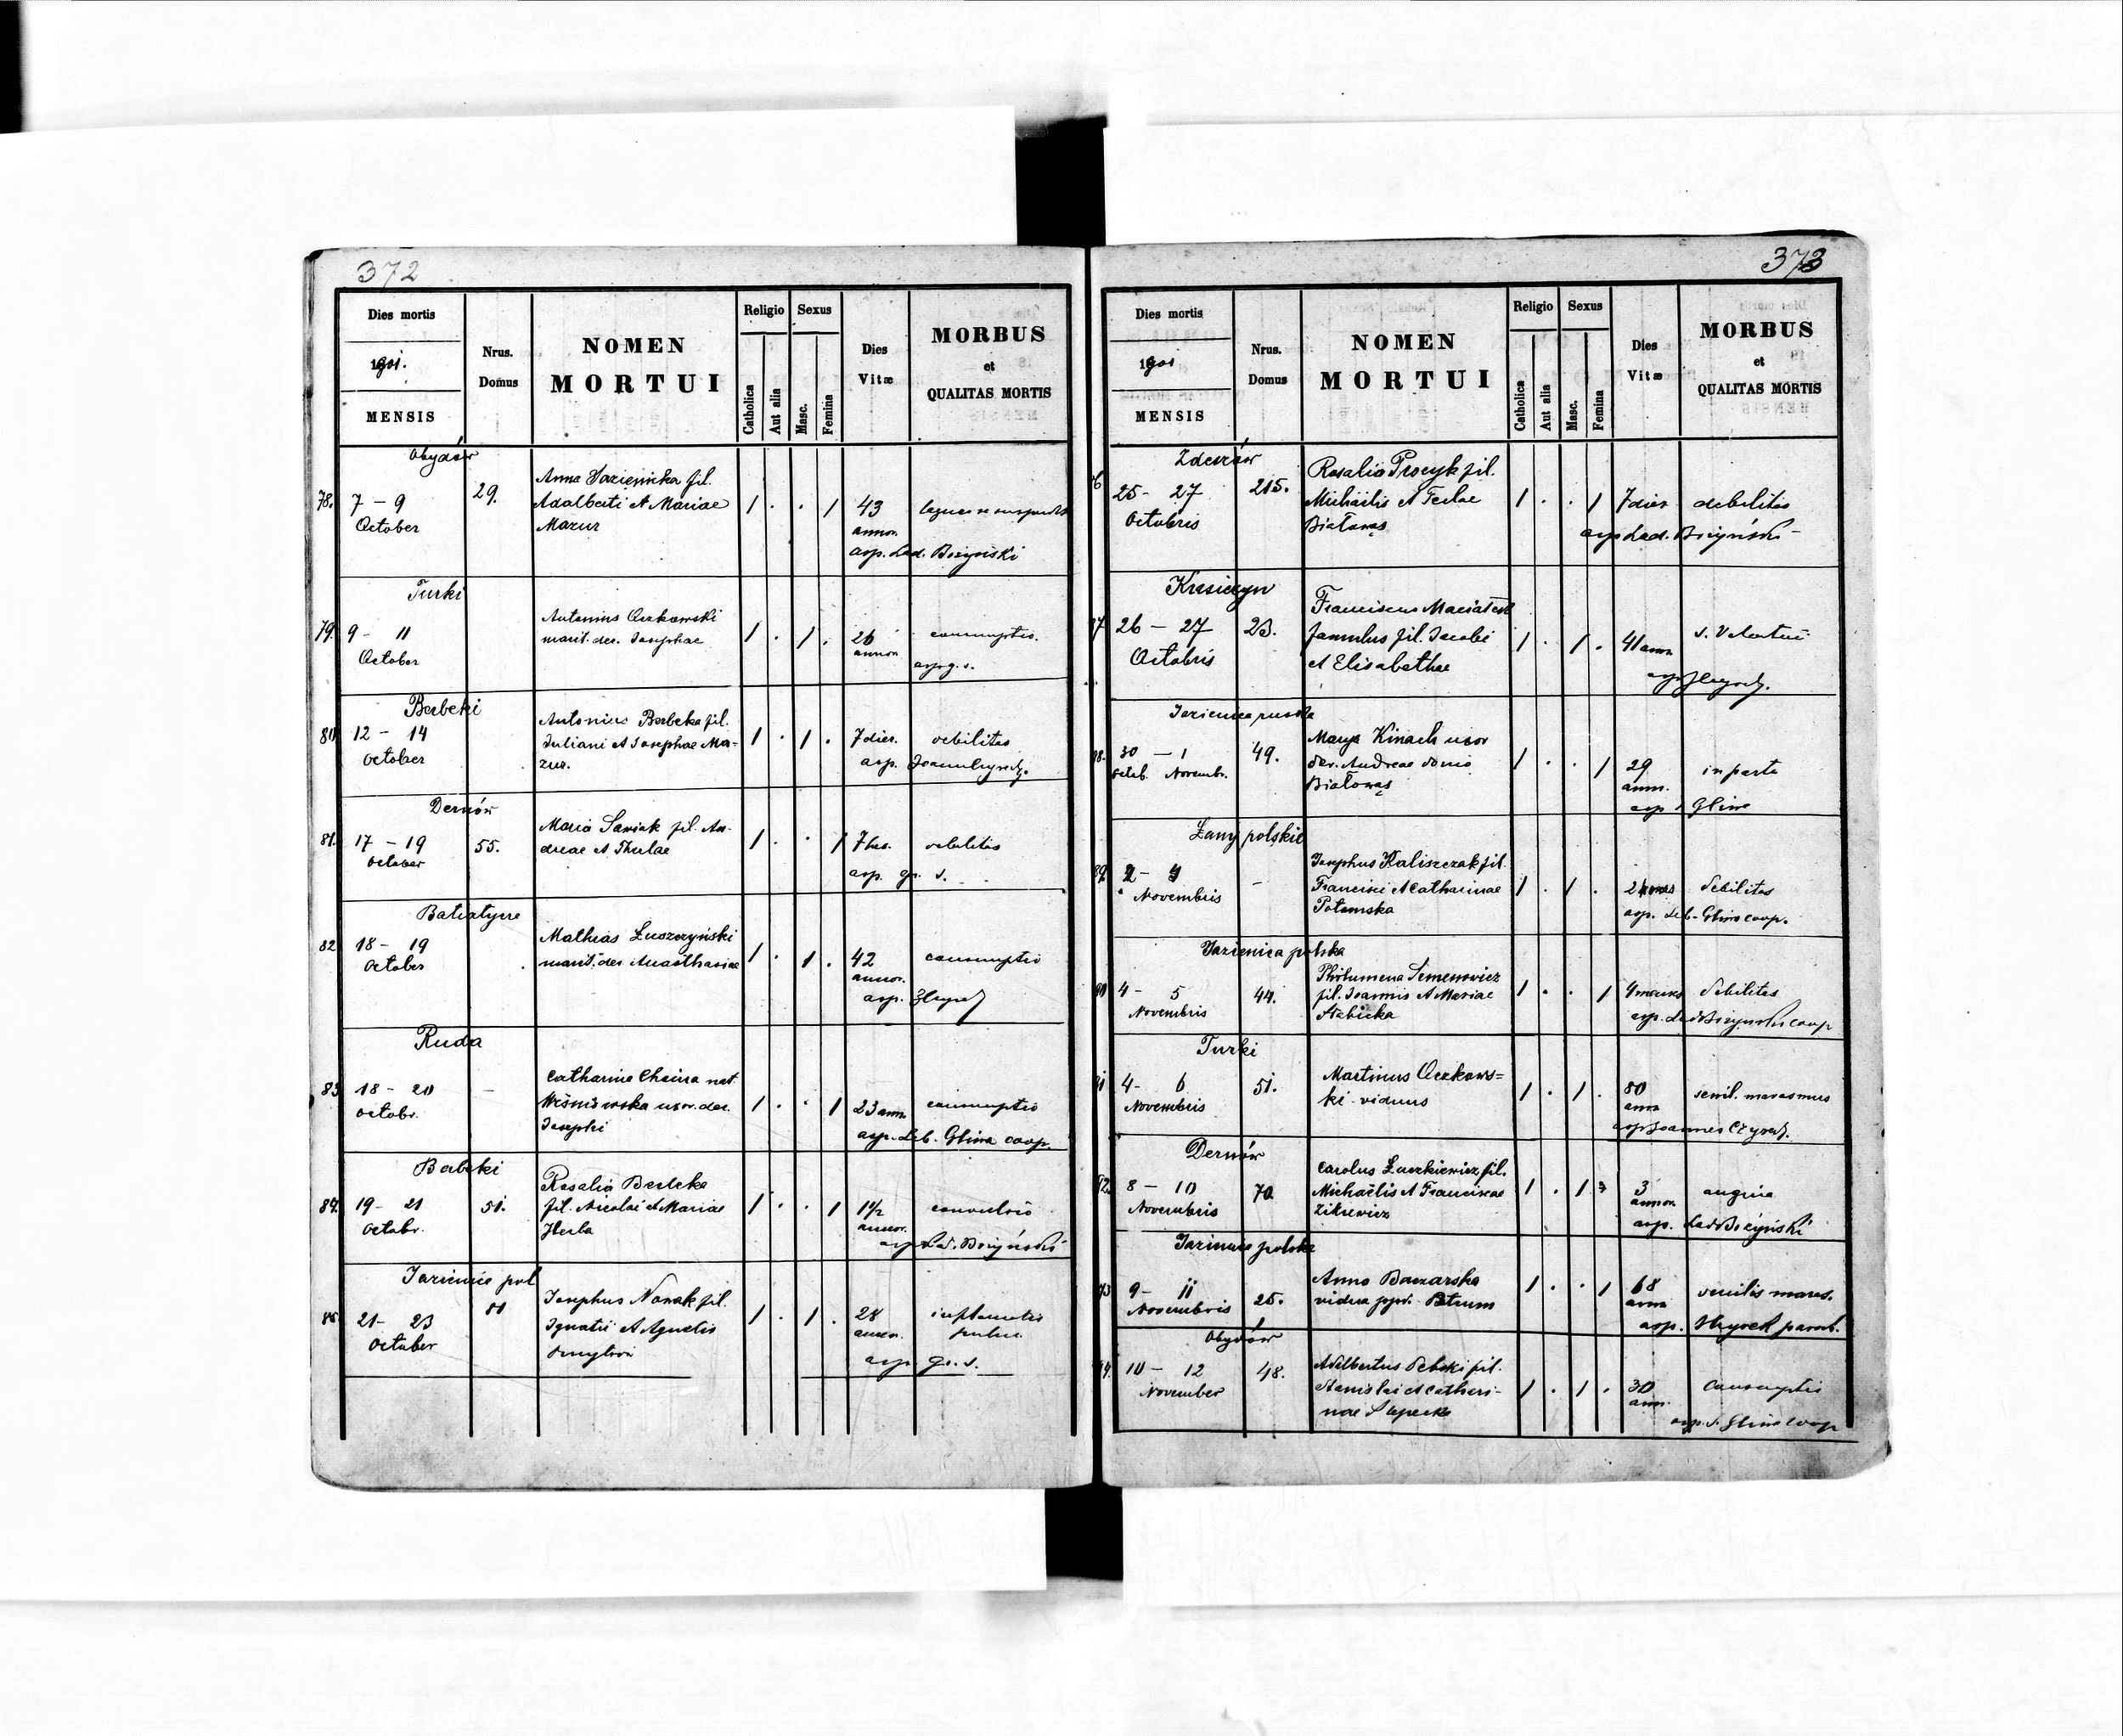 372
Dies mortis
1901.
MENSIS
Nrus.
Domus
NOMEN
MORTUI
Religio
Catholica
Aut alia
Sexus
Masc.
Femina
Dies
Vitæ
MORBUS
et
QUALITAS MORTIS
Obydów
78. 7 – 9
October
29.
Anna
fil.
Adalberti et Mariae
Mazur
1 . . 1
43
annor.
asp. Lad. Bożyński
Turki
79. 9 - 11
October
Antonius Oczkowski
marit. der. Josephae
1 . 1 .
26
annor.
consumptio.
asp. q. s.
Berbeki
80 12 – 14
October
Antonius Berbeka fil.
Juliani et Josephae Ma-
zur.
1 . 1 .
7 dier.
debilitas
asp.
Dernów
81. 17 – 19
October
55.
Maria Sawiak fil. An-
dreae et Theclae
1 . . 1
7 hor.
debilitas
asp. q. s.
Batiatyne
82 18 – 19
October
Mathias Łuszczyński
marit. der. Anasthasiae
1 . 1 .
42
annor.
consumptio
asp.
Ruda
83 18 – 20
Octobr.
–
Catharina Chaina nat.
Wiśniowska uxor. der.
Josephi
1 . . 1
23 ann.
consumptio
asp. Seb. Glina coop.
Berbeki
84. 19 – 21
Octobr.
51.
Rosalia Berbeka
fil. Nicolai et Mariae
Herba
1 . . 1
1 1/2
annor.
convulsio
asp. Lad. Bożyński
Jazienica pol
85 21 – 23
October
81
Josephus Nowak fil.
Ignatii et Agnetis
Dmytrów
1 . 1 .
28
annor.
asp. q. s.
373
Dies mortis
1901
MENSIS
Nrus.
Domus
NOMEN
MORTUI
Religio
Catholica
Aut alia
Sexus
Masc.
Femina
Dies
Vitæ
MORBUS
et
QUALITAS MORTIS
Zdeszów
6 25 - 27
Octobris
215.
Rosalia Procyk fil.
Michaëlis et Teclae
Białowąs
1 . . 1
7 dier
debilitas
asp. Lad. Bożyński
Krasiczyn
87 26 – 27
Octobris
23.
Franciscus
famulus fil. Jacobi
et Elisabethae
1 . 1 .
41 ann.
s. Valentini
asp.
Jazienica ruska
88. 30 – 1
Octob. Novembr.
49.
Marya Kinach uxor
der. Andreae domo
Białowąs
1 . . 1
29
annor.
in partu
asp. s. Glina
Łany polskie
89. 2 – 4
Novembris
–
Josephus Kaliszczak fil.
Francisci et Catharinae
Potomska
1 . 1 .
debilitas
asp. Seb. Glina coop.
Jazienica polska
90 4 - 5
Novembris
44.
Philumena Semenowicz
fil. Joannis et Mariae
Stabicka
1 . . 1
4 menses
debilitas
asp. Lad Bożyński coop
Turki
91 4 - 6
Novembris
51.
Martinus Oczkows=
ki viduus
1 . 1 .
80
ann
senil. marasmus
asp. Joannes Czyrek.
Dernów
92. 8 – 10
Novembris
70.
Carolus Łuczkiewicz fil.
Michaëlis et Franciscae
Zikiewicz
1 . 1
3
annor.
angina
asp. Lad Bożyński
Jazienica polska
93 9 – 11
Novembris
25.
Anna Baczarska
vidua post. Petrum
1 . . 1
68
annor
senilis maras.
asp. paroch.
Obydów
94. 10 – 12
November
48.
Adalbertus Debski fil.
Stanislai et Cathari-
nae
1 . 1 .
30
ann.
Consumptio
asp. s. Glina coop